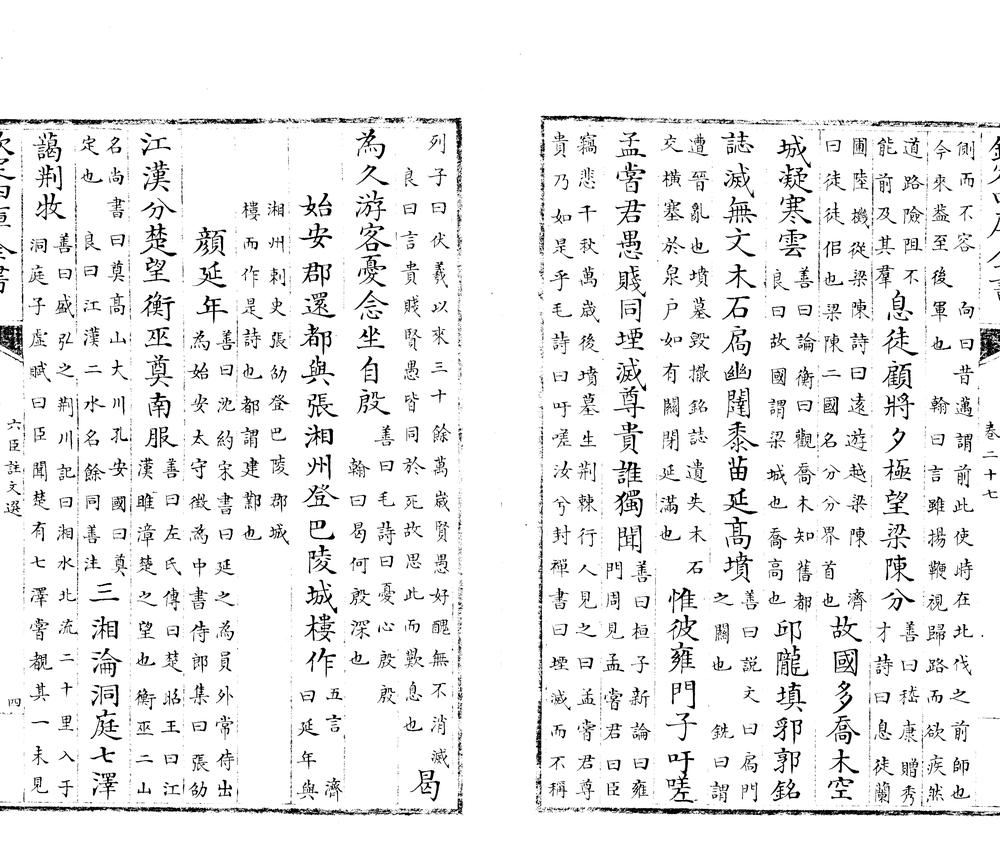 卷二十七
側而不容 向曰昔邁謂前此使時在北伐之前師也
今來葢至後軍也 翰曰言雖揚鞭視歸路而欲疾然
道路險阻不
能前及其羣
息徒顧將夕極望梁陳分
善曰嵇康贈秀
才詩曰息徒蘭
圃陸機從梁陳詩曰遠遊越梁陳 濟
曰徒徒侣也梁陳二國名分分界首也
故國多喬木空
城凝寒雲
善曰論衡曰觀喬木知舊都
良曰故國謂梁城也喬高也
邱隴填郛郭銘
誌滅無文木石扃幽闥黍苗延髙墳
善曰說文曰扃門
之關也 銑曰謂
遭晉亂也墳墓毀撤銘誌遺失木石
交橫塞於泉户如有關閉延滿也
惟彼雍門子吁嗟
孟嘗君愚賤同堙滅尊貴誰獨聞
善曰桓子新論曰雍
門周見孟嘗君曰臣
竊悲千秋萬歳後墳墓生荆棘行人見之曰孟嘗君尊
貴乃如是乎毛詩曰吁嗟汝兮封禪書曰堙滅而不稱
列子曰伏羲以來三十餘萬歳賢愚好醜無不消滅
良曰言貴賤賢愚皆同於死故思此而歎息也
曷
為久游客憂念坐自殷
善曰毛詩曰憂心殷殷
翰曰曷何殷深也
始安郡還都與張湘州登巴陵城樓作
五言 濟
曰延年與
湘州刺史張劭登巴陵郡城
樓而作是詩也都謂建鄴也
顔延年
善曰沈約宋書曰延之為員外常侍出
為始安太守徵為中書侍郎集曰張劭
江漢分楚望衡巫奠南服
善曰左氏傳曰楚昭王曰江
漢雎漳楚之望也衡巫二山
名尚書曰奠高山大川孔安國曰奠
定也 良曰江漢二水名餘同善注
三湘淪洞庭七澤
藹荆牧
善曰盛弘之荆川記曰湘水北流二十里入于
洞庭子虛賦曰臣聞楚有七澤嘗覩其一未見
欽定四庫全書
六臣註文選
四